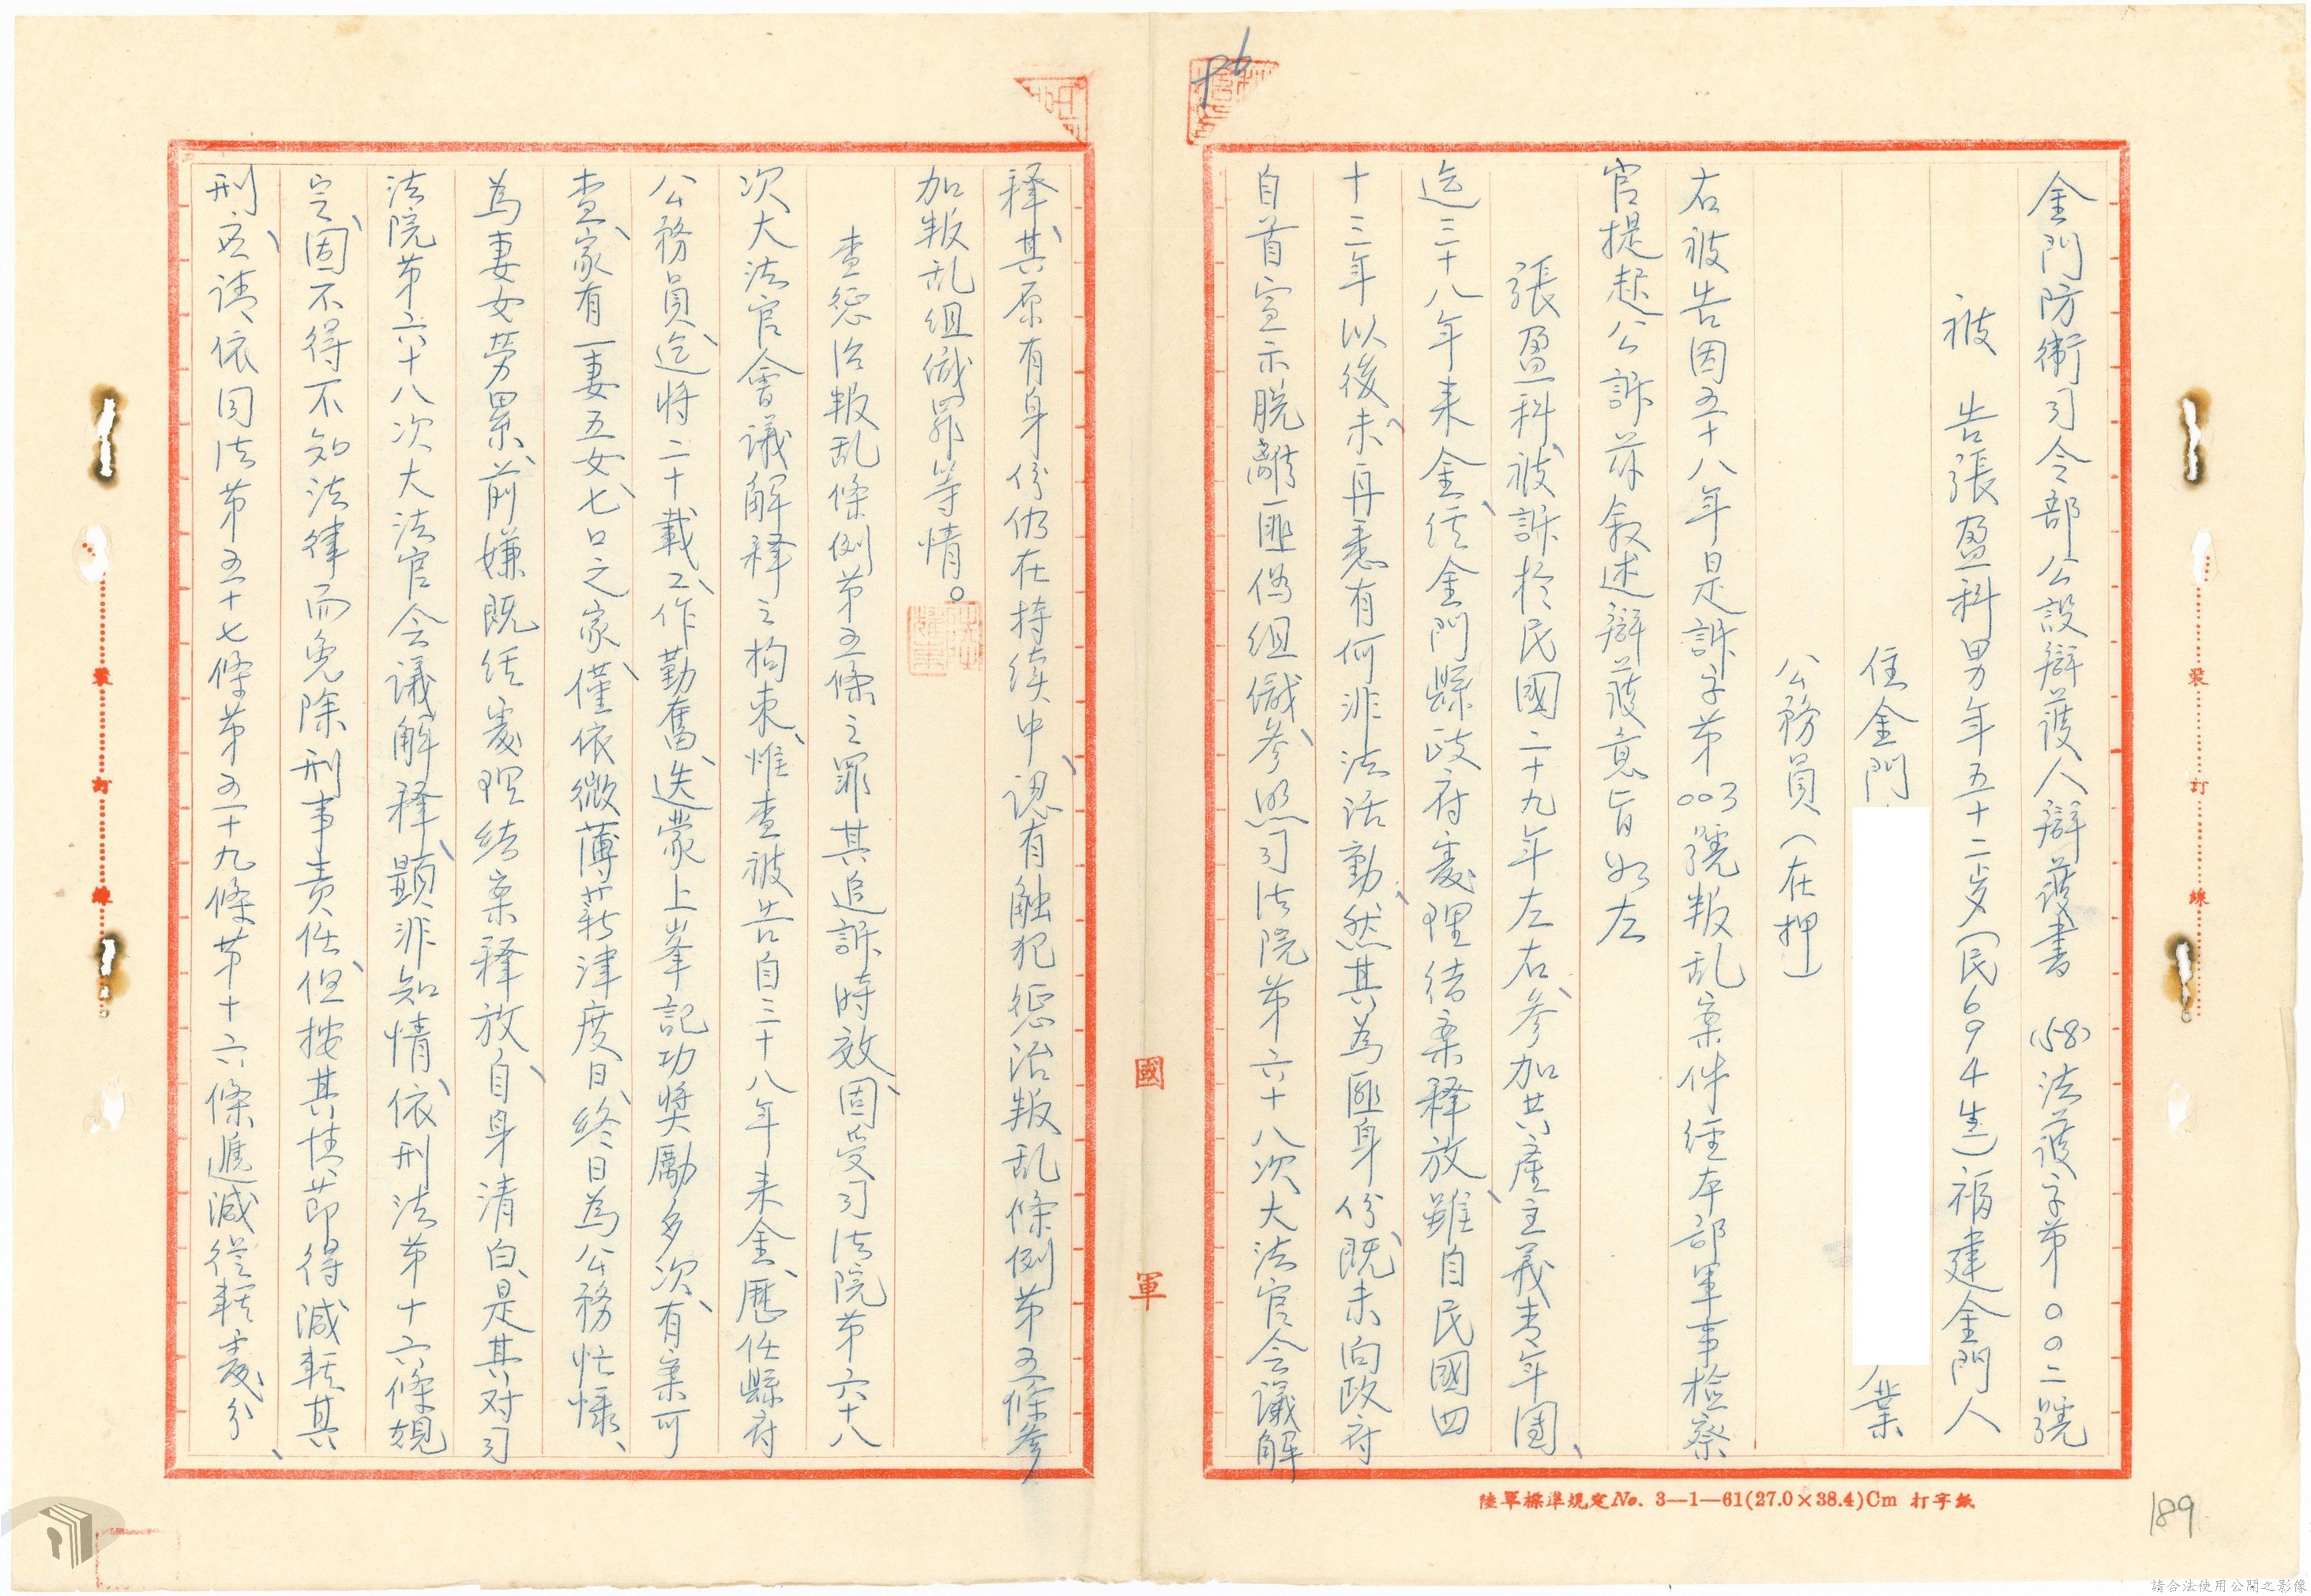 金門防衛司令部公設辯護人辯護書　(58)法護字第００二號
被　告張盈科男年五十二岁(民6 9 4生)福建金門人
住金門
業
公務員(在押)
右被告因五十八年是訴字第003號叛乱案件經本部軍事檢察
官提起公訴茲敘述辯護意旨如左
張盈科、被訴於民國二十九年左右、参加共產主義青年團、
迄三十八年来金、经金門縣政府處理结案釋放、雖自民國四
十三年以後、未再悉有何非法活動、然其為匪身份、既未向政府
自首宣示脱離匪偽组織、参照司法院第六十八次大法官会議解
释、其原有身份仍在持续中、认有触犯惩治叛乱條例第五條参
加叛乱组織罪等情。
查惩治叛乱條例第五條之罪其追訴時效、固受司法院第六十八
次大法官會議解释之拘束、惟查被告自三十八年来金、歷任縣府
公務員、迄将二十載、工作勤奮、迭蒙上峯記功獎勵多次、有案可
查、家有一妻五女、七口之家、僅依微薄薪津度日、終日為公務忙慄、
為妻女劳累、前嫌既经處理结案释放、自身清白、是其对司
法院第六十八次大法官会議解释、顯非知情、依刑法第十六條規
定、固不得不知法律而免除刑事责任、但按其情節得减輕其
刑、应请依同法第五十七條第五十九條第十六條遞减從輕處分、
國
軍
裝
訂
線
裝
訂
線
陸軍標準規定No. 3—1—61(27.0×38.4)Cm 打字紙
189
請合法使用公開之影像